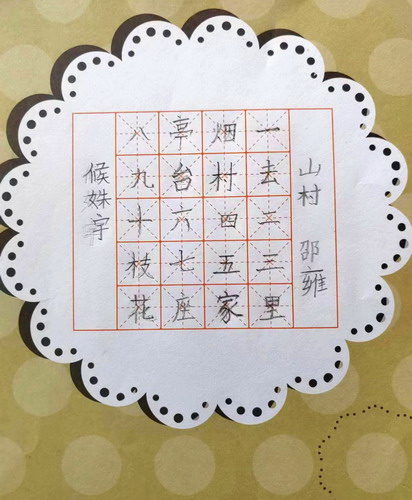 山村 邵雍
一去二三里
烟村四五家
亭台六七座
八九十枝花
候姝宇